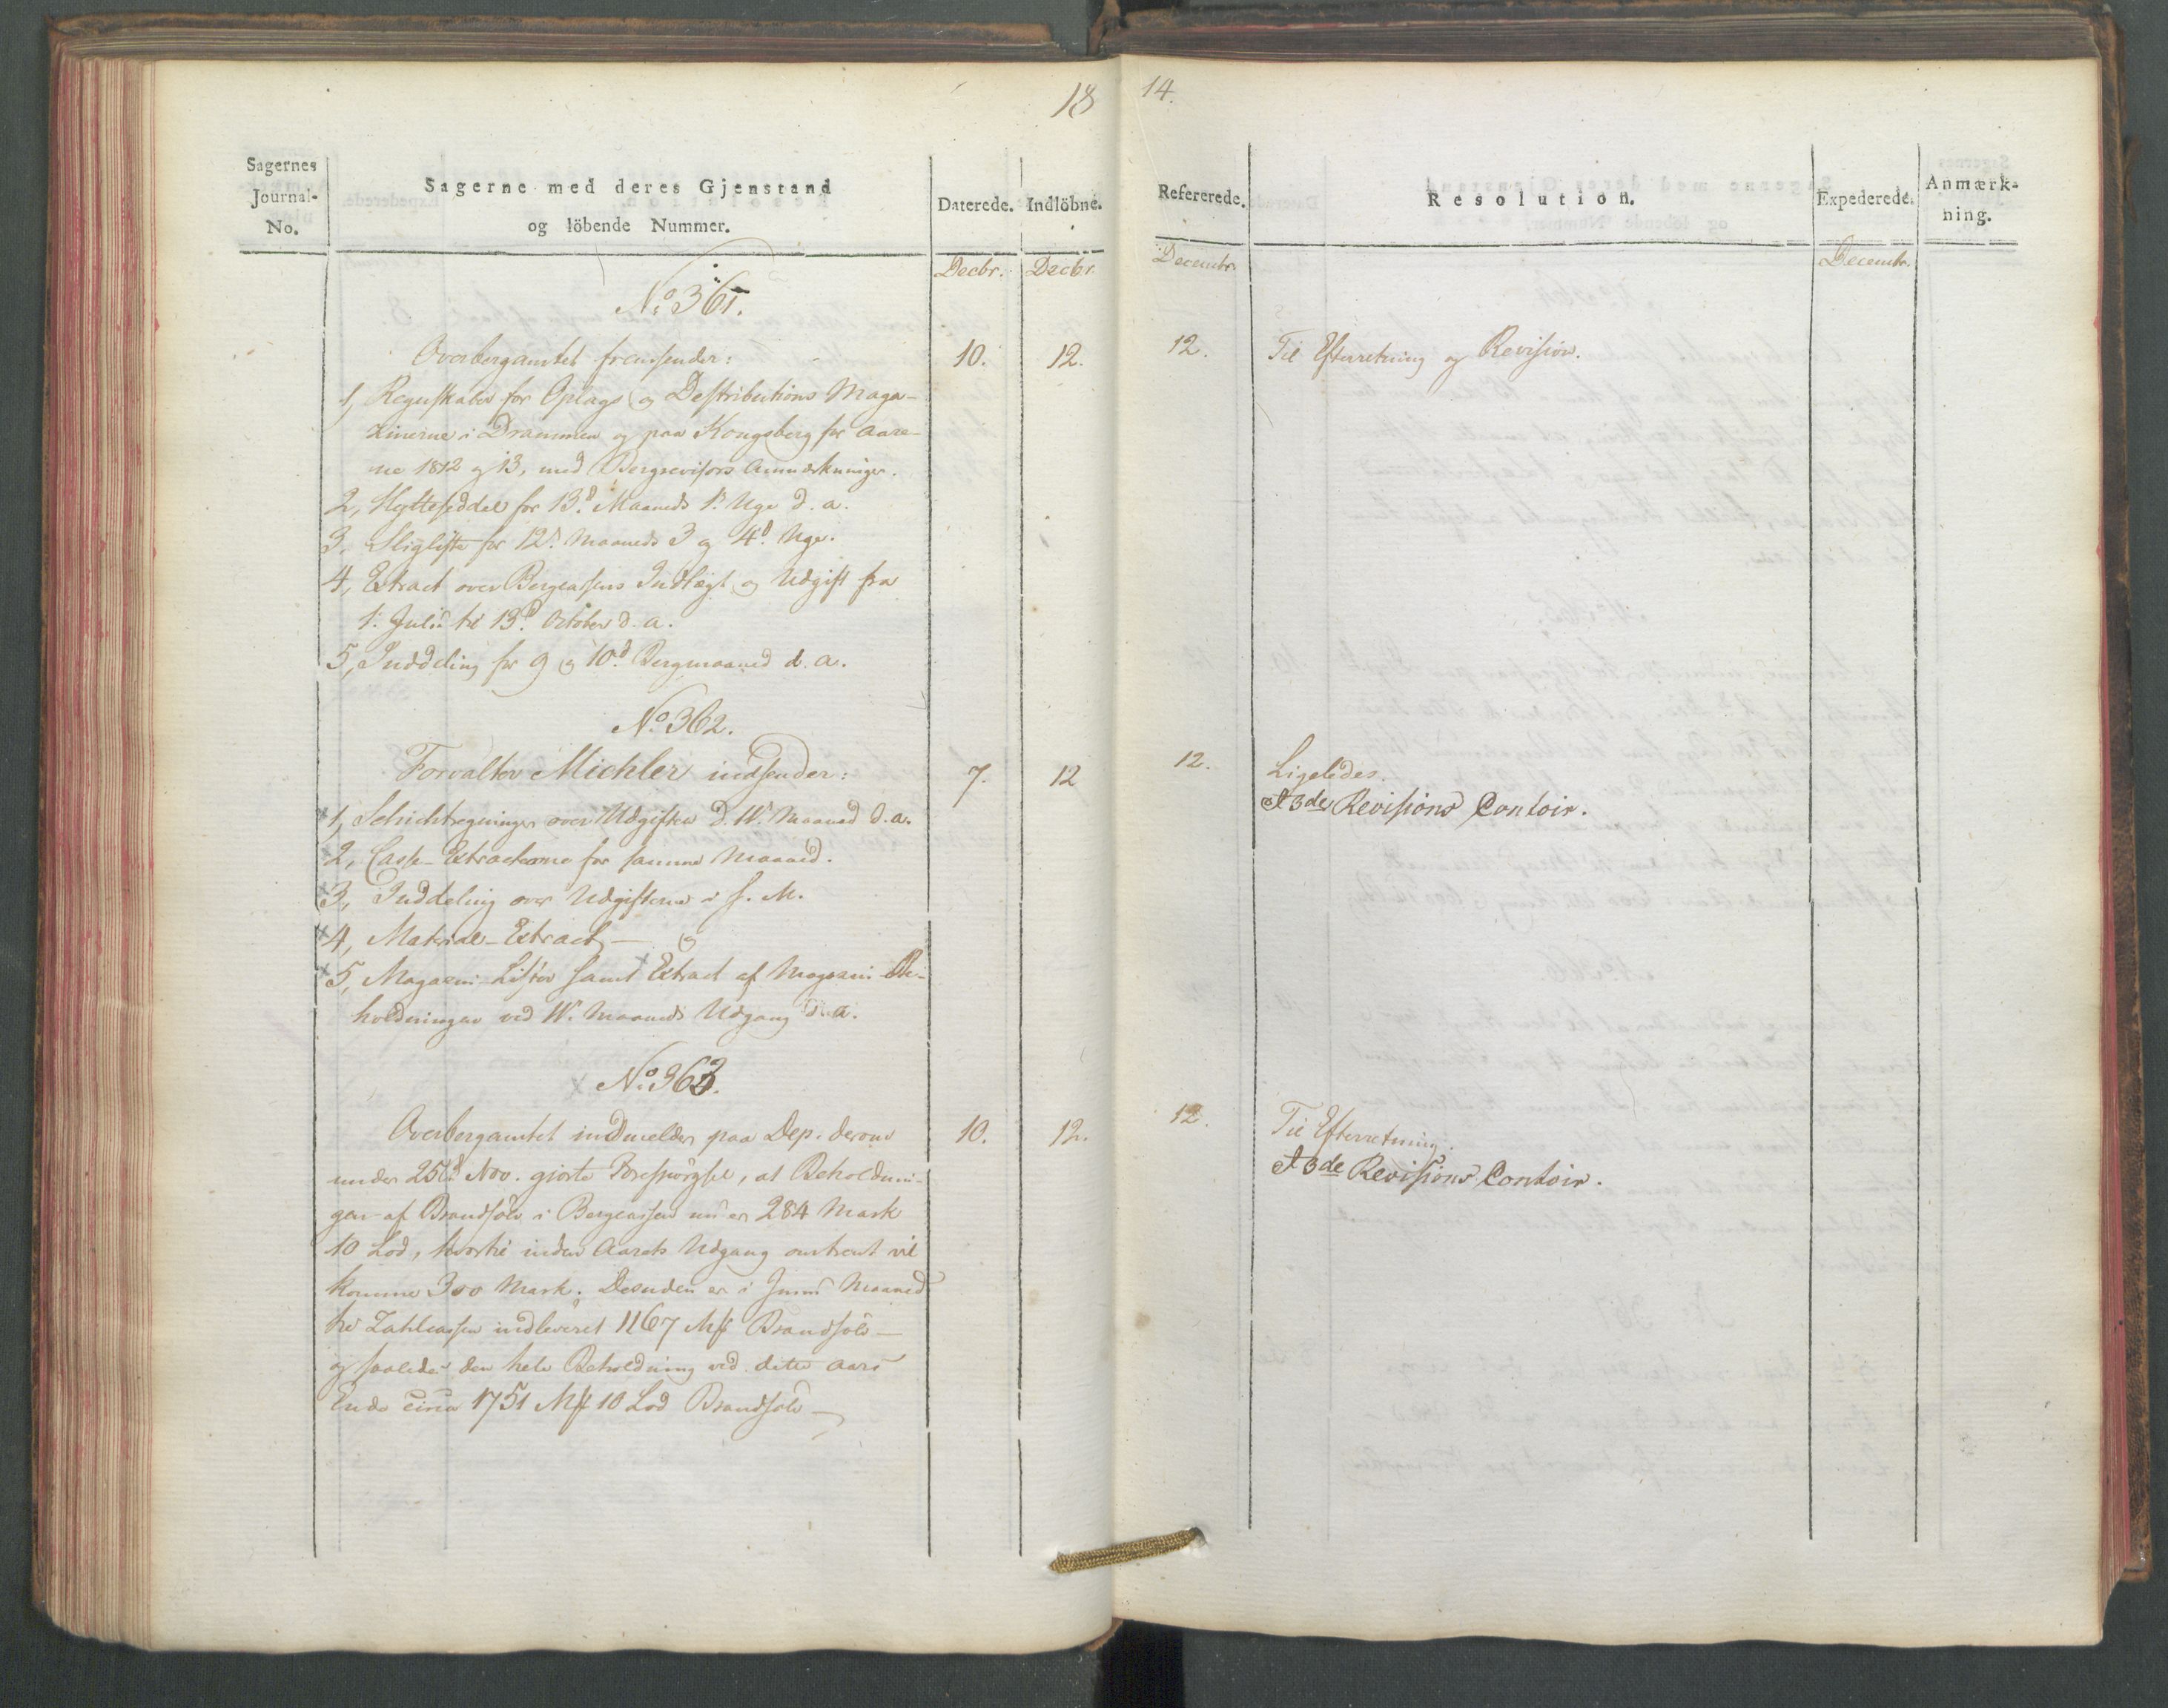 18
Sagernes
Journal-
No.
Sagerne med deres Gjenstand
og löbende Nummer.
Daterede.
Indlöbne.
Decbr.
Decbr.
No. 361.
Overbergamtet fremsender:
10.
12.
1, Regnskaber for Oplags og Destributions Maga-
zinerne i Drammen og paa Kongsberg for Aare-
ne 1812 og 13, med Bergrevisors Anmærkninger.
2, Hytteseddel for 13d. Maaneds 1. Uge d. a.
3, Sliglista for 12. Maaneds 3 og 4d. Uge.
4, Extract over Bergcassens Indtægt og Udgift fra
1. Juli til 13d. October d. a.
5, Inddeling for 9 og 10d. Bergmaaned d. a.
No. 362.
Forvalter Michler indsender:
7.
12
1, Schichtregninger over Udgiften d. 11. Maaned d. a.
2, Casse-Extracterne for samme Maaned.
3, Inddeling over Udgifterne i s. M.
4, Material-Extract, — og
5, Magazin Lister samt Extract af Magazin Be-
holdningen ved 11. Maaneds Udgang d. a.
No. 363.
Overbergamtet indmelder paa Dep. derom
10.
12.
under 25d. Nov. gjorte Forespörgsel, at Beholdnin-
gen af Brandsölv i Bergcassen nu er 284 Mark
10 Lod, hvortil inden Aarets Udgang omtrent vil
komme 300 Mark. Desuden er i Junii Maaned
til Zahlcassen indleveret 1167 Mk Brandsölv —
og saaledes den hele Beholdning ved dette Aars
Ende circa 1751 Mk 10 Lod Brandsölv —
14.
Refererede.
Resolution.
Expederede.
Anmærk-
ning.
Decembr.
Decembr.
12.
Til Efterretning og Revision.
12.
Ligeledes.
et 3de Revisions Contoir.
12.
Til Efterretning.
et 3de Revisions Contoir.